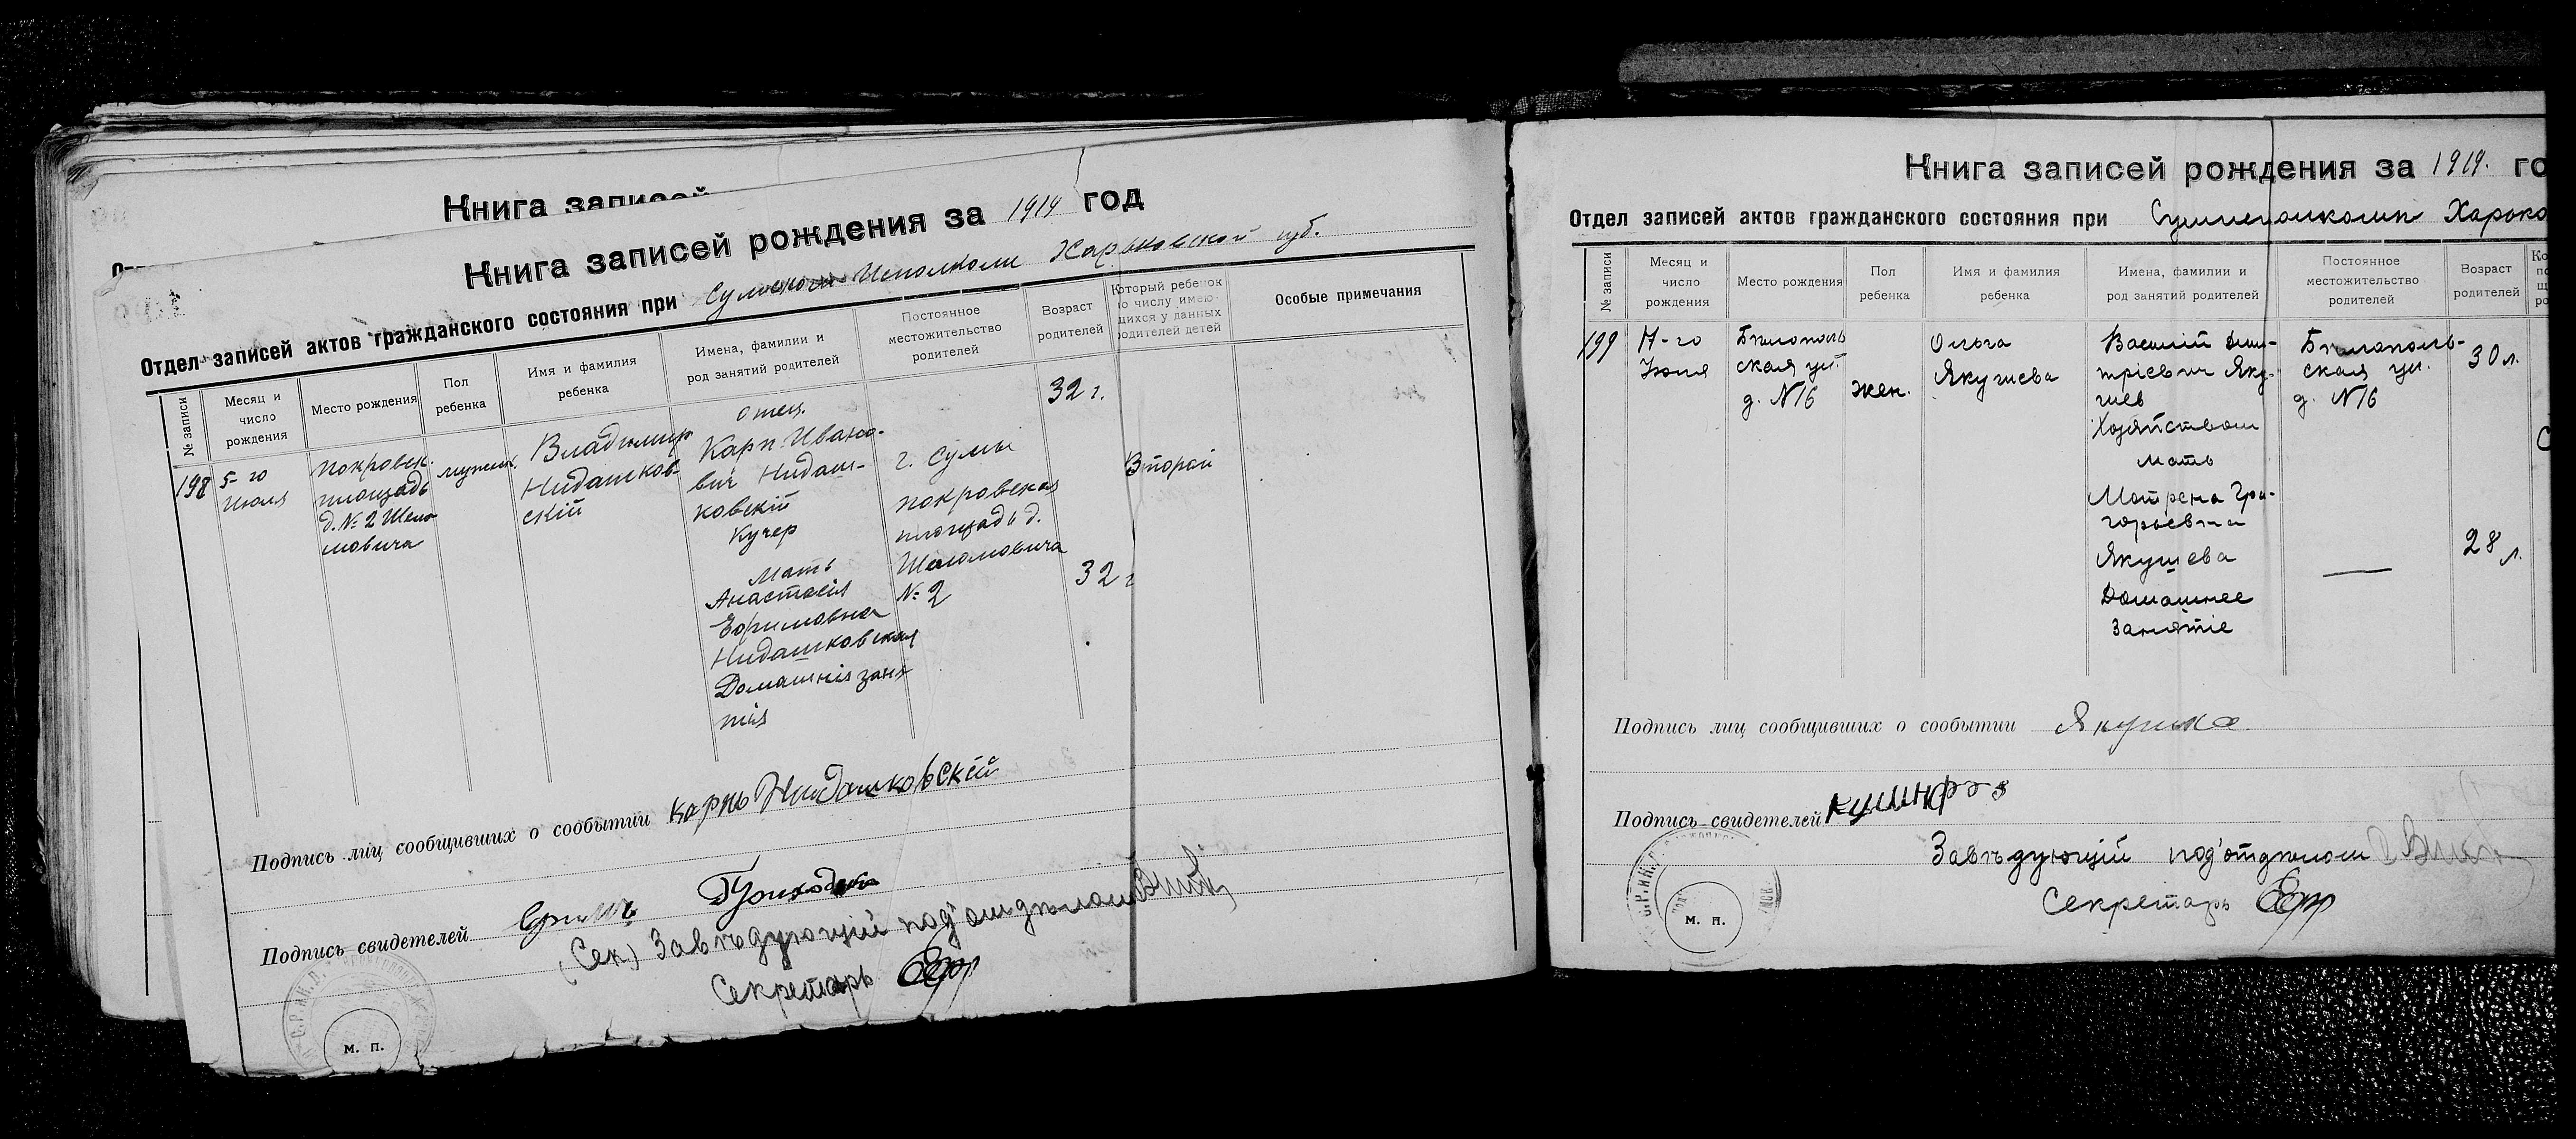 Книга записей
Книга записей рождения за 1919 год
Отдел записей актов гражданского состояния при Сумского Исполкома Харьковской губ.
№ записи
Месяц и число рождения
Место рождения
Пол ребенка
Имя и фамилия ребенка
Имена, фамилии и род занятий родителей
Постоянное местожительство родителей
Возраст родителей
Который ребенок по числу имеющихся у данных родителей детей
Особые примечания
198
5-го
июля
Покровск.
площадь
д. № 2 Шоло
мовича
мужск.
Владимир
Нидашков-
скій
отец.
Карп Ивано-
вич Нидаш-
ковскій
Кучер
Мать
Анастасія
Ефимовна
Нидашковская
Домашнія заня
тія
г. Сумы
покровская
площадь д.
Шоломовича
№ 2
32 г.
32 г
Второй
Подпись лиц сообщивших о сообытии Карпъ Нидашковскій
Подпись свидетелей
(Сек) Завѣдующій под'отдѣлом
Секретарь
м. п.
Книга записей рождения за 1919. го
Отдел записей актов гражданского состояния при Сумисполкома Харько
№ записи
Месяц и число рождения
Место рождения
Пол ребенка
Имя и фамилия ребенка
Имена, фамилии и род занятий родителей
Постоянное местожительство родителей
Возраст родителей
199
17-го
Июля
Бѣлополь
ская ул.
д. №16
жен.
Ольга
Якушева
Василій Дми-
тріевич Яку-
шев
Хозяйством
Мать
Матрена Гри-
горьевна
Якушева
Домашнее
Занятіе
Бѣлополь-
ская ул.
д. №16
30 л.
28 л.
Подпись лиц сообщивших о сообытии
Подпись свидетелей
Завѣдующій под'отдѣлом
Секретарь
м. п.